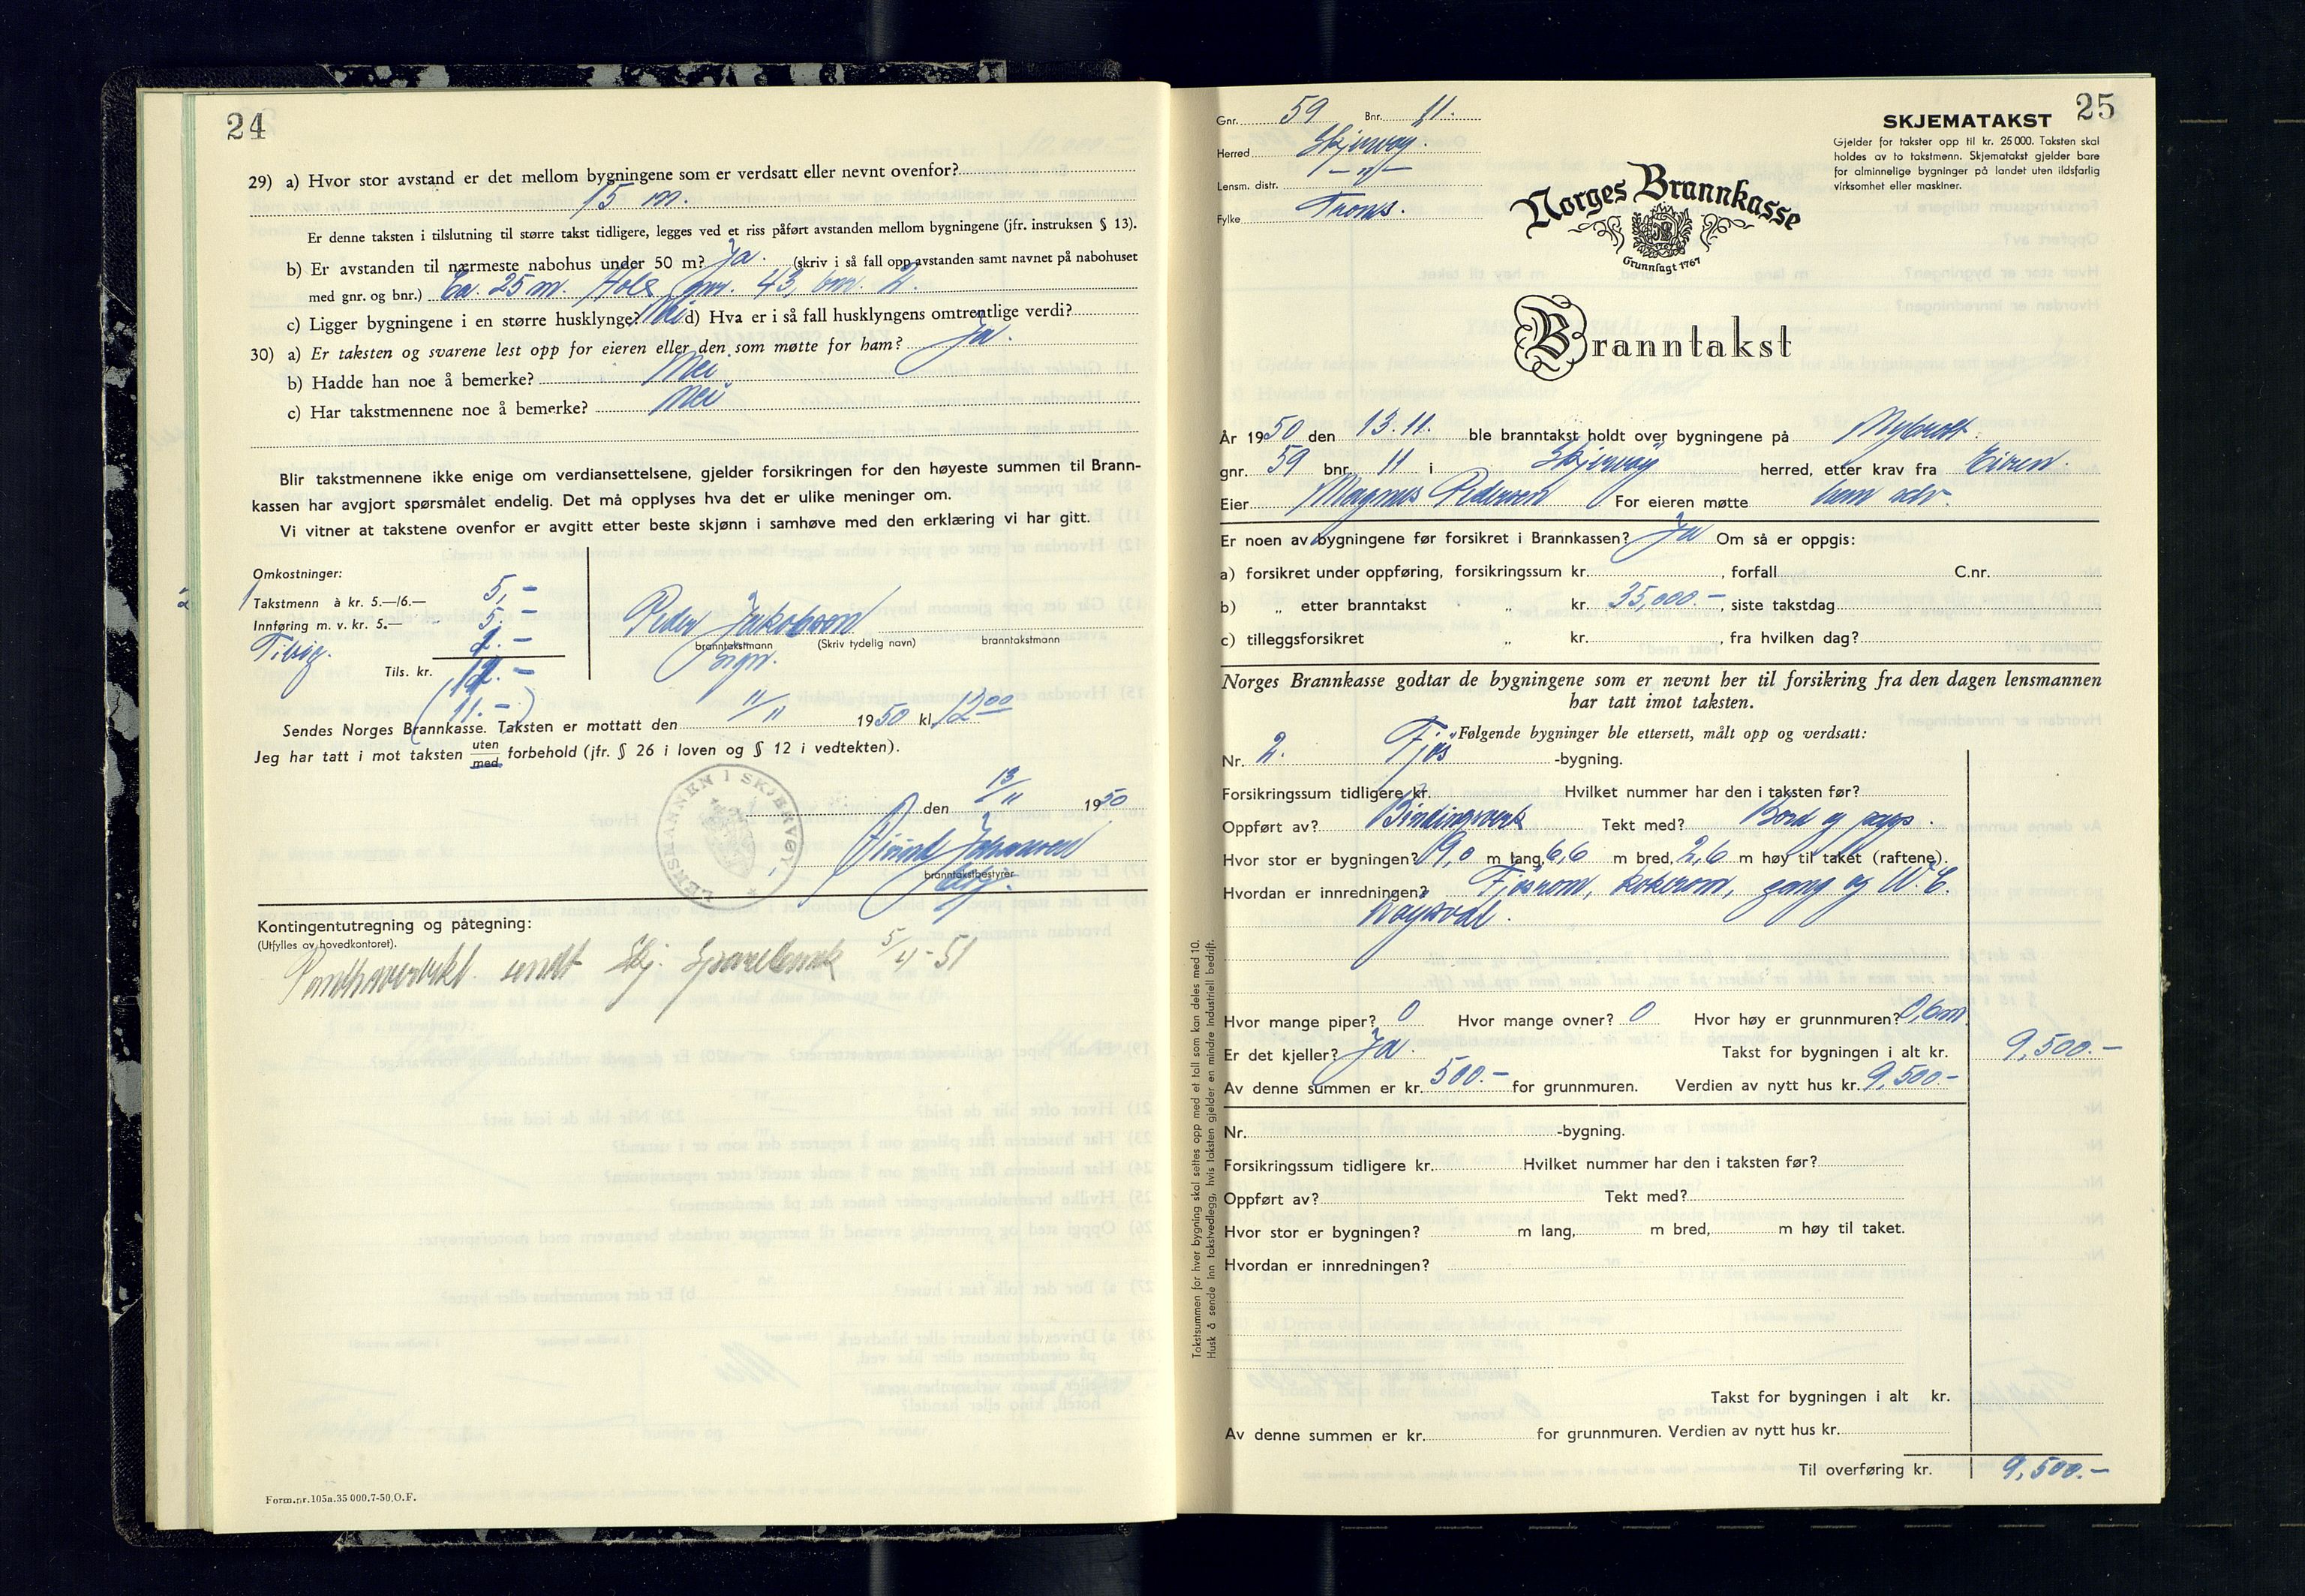 24
29) a) Hvor stor avstand er det mellom bygningene som er verdsatt eller nevnt ovenfor?
15 m.
Er denne taksten i tilslutning til større takst tidligere, legges ved et riss påført avstanden mellom bygningene (jfr. instruksen § 13).
b) Er avstanden til nærmeste nabohus under 50 m? Ja. (skriv i så fall opp avstanden samt navnet på nabohuset
med gnr. og bnr.) Ca. 25 m. Hole gnr. 43, bnr. 2.
c) Ligger bygningene i en større husklynge? Nei d) Hva er i så fall husklyngens omtrentlige verdi?
30) a) Er taksten og svarene lest opp for eieren eller den som møtte for ham? Ja.
b) Hadde han noe å bemerke? Nei
c) Har takstmennene noe å bemerke? Nei
Blir takstmennene ikke enige om verdiansettelsene, gjelder forsikringen for den høyeste summen til Brann-
kassen har avgjort spørsmålet endelig. Det må opplyses hva det er ulike meninger om.
Vi vitner at takstene ovenfor er avgitt etter beste skjønn i samhøve med den erklæring vi har gitt.
Omkostninger:
1 Takstmenn à kr. 5.—/6.— 5,-
Innføring m. v. kr. 5.— 5.-
Tils. kr.
(11.-)
Peder Jakobsen
branntakstmann (Skriv tydelig navn) branntakstmann
sign.
Sendes Norges Brannkasse. Taksten er mottatt den 11/11 1950 kl. 12 00
Jeg har tatt i mot taksten uten med forbehold (jfr. § 26 i loven og § 12 i vedtekten).
LENSMANNEN I SKJERVØY
den 13/11 1950
Johansen
branntakstbestyrer
Kontingentutregning og påtegning:
(Utfylles av hovedkontoret).
sendt Skj. Sparebank 5/4-51
Form.nr.105a.35 000.7-50.O.F.
25
Gnr. 59 Bnr. 11.
Herred Skjervøy.
Lensm. distr. -"-
Fylke Troms.
SKJEMATAKST
Gjelder for takster opp til kr. 25 000. Taksten skal
holdes av to takstmenn. Skjematakst gjelder bare
for alminnelige bygninger på landet uten ildsfarlig
virksomhet eller maskiner.
Norges Brannkasse
Grunnlagt 1767
Branntakst
År 1950 den 13.11. ble branntakst holdt over bygningene på Nybrott.
gnr. 59 bnr. 11 i Skjervøy herred, etter krav fra Eieren.
Eier Magnus Pedersen For eieren møtte han selv.
Er noen av bygningene før forsikret i Brannkassen? Ja Om så er oppgis:
a) forsikret under oppføring, forsikringssum kr. , forfall C.nr.
b) „ etter branntakst „ kr. 35,000.- , siste takstdag
c) tilleggsforsikret „ kr. , fra hvilken dag?
Norges Brannkasse godtar de bygningene som er nevnt her til forsikring fra den dagen lensmannen
har tatt imot taksten.
Følgende bygninger ble ettersett, målt opp og verdsatt:
Nr. 2. Fjøs -bygning.
Forsikringssum tidligere kr. Hvilket nummer har den i taksten før?
Oppført av? Bindingsverk Tekt med? Bord og papp.
Hvor stor er bygningen? 9,0 m lang, 6,6 m bred, 2,6 m høy til taket (raftene).
Hvordan er innredningen? Fjøsrom, kokerom, gang og W.C.
Hvor mange piper? 0 Hvor mange ovner? 0 Hvor høy er grunnmuren? 0,6m
Er det kjeller? Ja. Takst for bygningen i alt kr. 9,500.-
Av denne summen er kr. 500.- for grunnmuren. Verdien av nytt hus kr. 9,500.-
Nr. -bygning.
Forsikringssum tidligere kr. Hvilket nummer har den i taksten før?
Oppført av? Tekt med?
Hvor stor er bygningen? m lang, m bred, m høy til taket.
Hvordan er innredningen?
Takst for bygningen i alt kr.
Av denne summen er kr. for grunnmuren. Verdien av nytt hus kr.
Til overføring kr. 9,500.-
Takstsummen for hver bygning skal settes opp med et tall som kan deles med 10.
Husk å sende inn takstvedlegg, hvis taksten gjelder en mindre industriell bedrift.